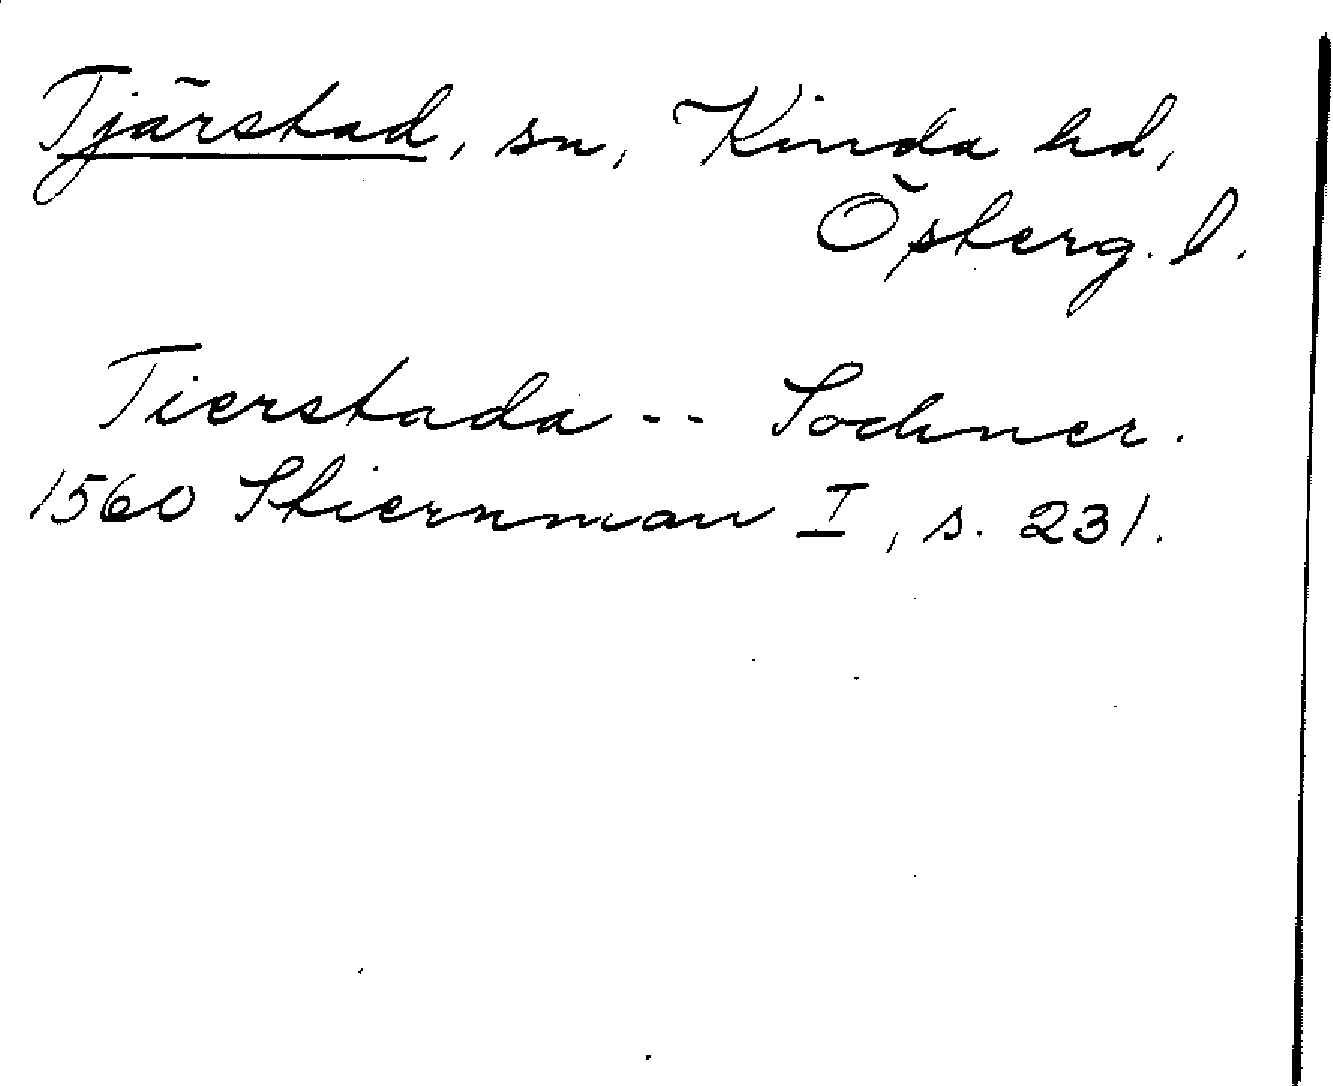 Tjärstad, sn, Kinda hd,
Österg. l.
Tierstada -- Sochner.
1560 Stiernman I, s. 231.